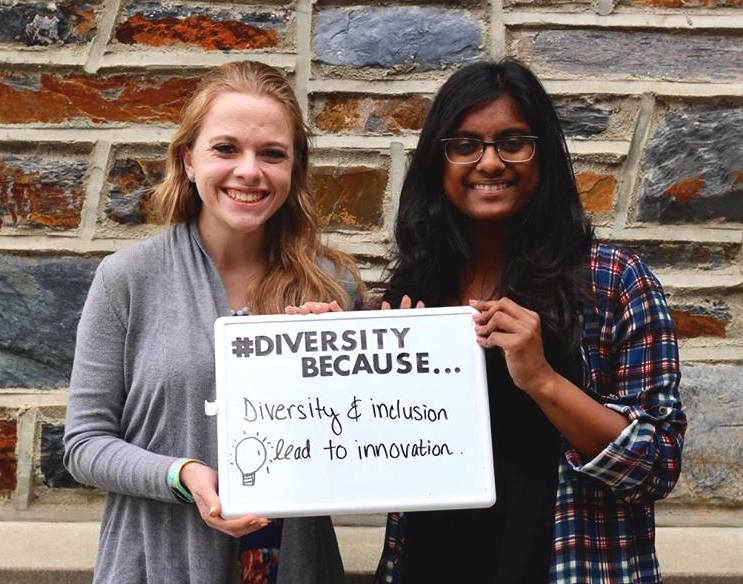 #DIVERSITY
BECAUSE...
Diversity & inclusion
lead to innovation.